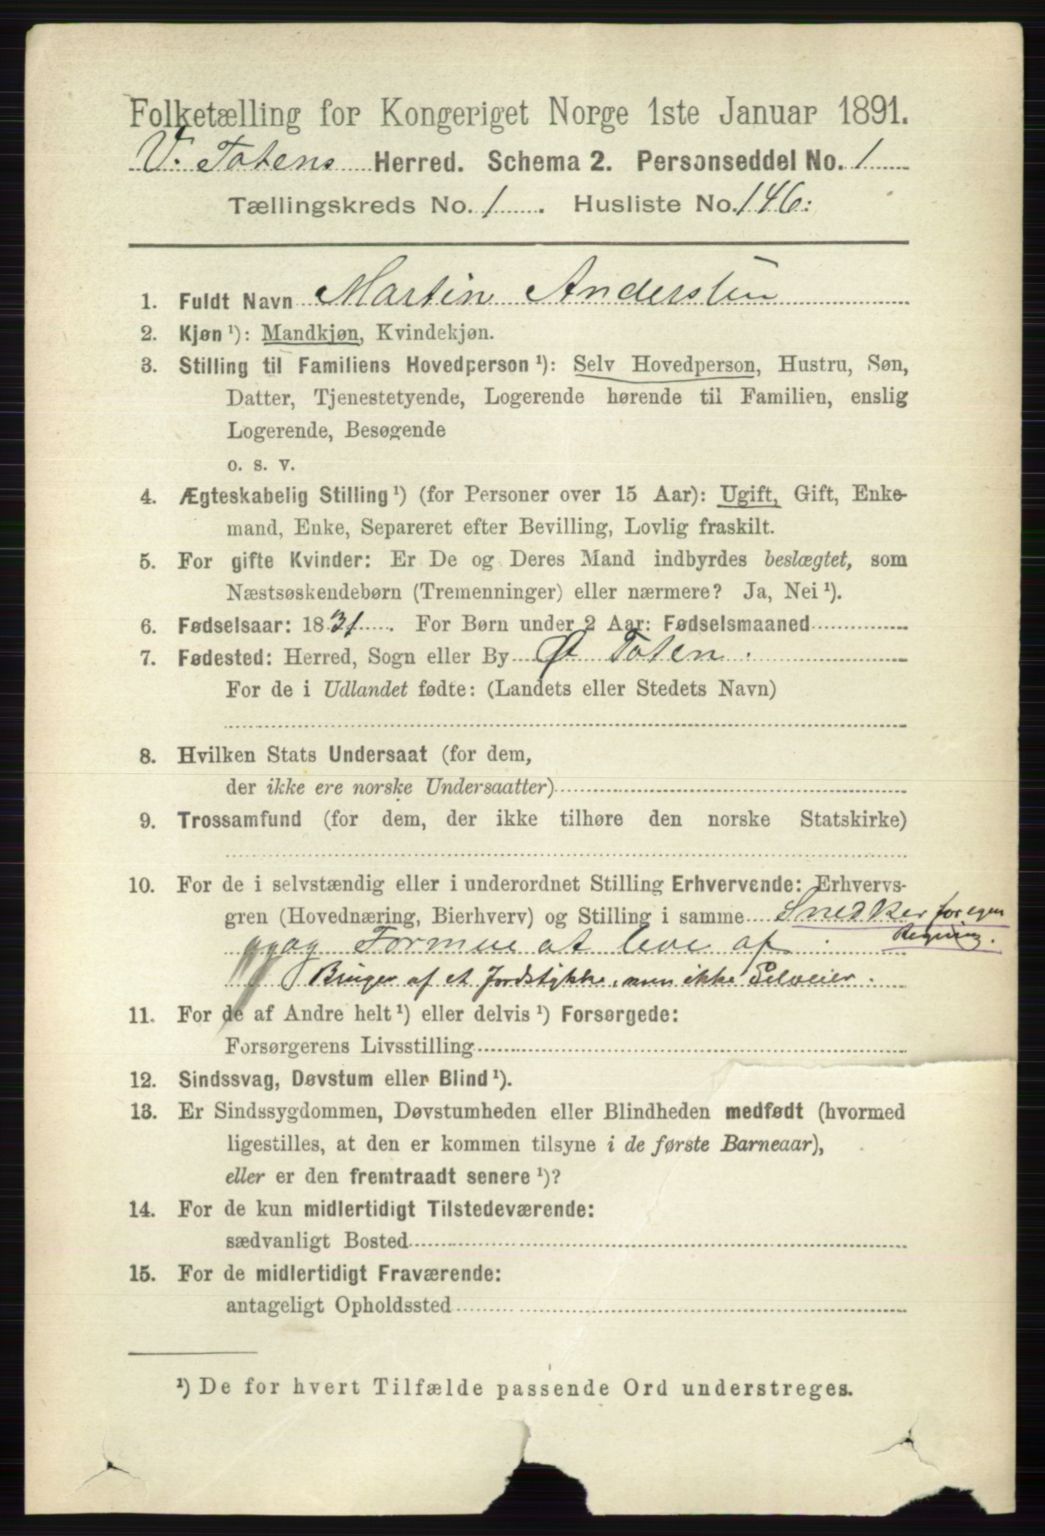 Folketælling for Kongeriget Norge 1ste Januar 1891.
V. Totens Herred. Schema 2. Personseddel No. 1
Tællingskreds No. 1. Husliste No. 146:
1. Fuldt Navn Martin Andersen
2. Kjøn ¹): Mandkjøn, Kvindekjøn.
3. Stilling til Familiens Hovedperson ¹): Selv Hovedperson, Hustru, Søn,
Datter, Tjenestetyende, Logerende hørende til Familien, enslig
Logerende, Besøgende
o. s. v.
4. Ægteskabelig Stilling ¹) (for Personer over 15 Aar): Ugift, Gift, Enke-
mand, Enke, Separeret efter Bevilling, Lovlig fraskilt.
5. For gifte Kvinder: Er De og Deres Mand indbyrdes beslægtet, som
Næstsøskendebørn (Tremenninger) eller nærmere? Ja, Nei ¹).
6. Fødselsaar: 1831. For Børn under 2 Aar: Fødselsmaaned
7. Fødested: Herred, Sogn eller By Ø Toten.
For de i Udlandet fødte: (Landets eller Stedets Navn)
8. Hvilken Stats Undersaat (for dem,
der ikke ere norske Undersaatter)
9. Trossamfund (for dem, der ikke tilhøre den norske Statskirke)
10. For de i selvstændig eller i underordnet Stilling Erhvervende: Erhvervs-
gren (Hovednæring, Bierhverv) og Stilling i samme Snedker for egen
Regning.
og Formue at leve af.
Bruger af et Jordstykke, men ikke Selveier.
11. For de af Andre helt ¹) eller delvis ¹) Forsørgede:
Forsørgerens Livsstilling
12. Sindssvag, Døvstum eller Blind ¹).
13. Er Sindssygdommen, Døvstumheden eller Blindheden medfødt (hvormed
ligestilles, at den er kommen tilsyne i de første Barneaar),
eller er den fremtraadt senere ¹)?
14. For de kun midlertidigt Tilstedeværende:
sædvanligt Bosted
15. For de midlertidigt Fraværende:
antageligt Opholdssted
¹) De for hvert Tilfælde passende Ord understreges.